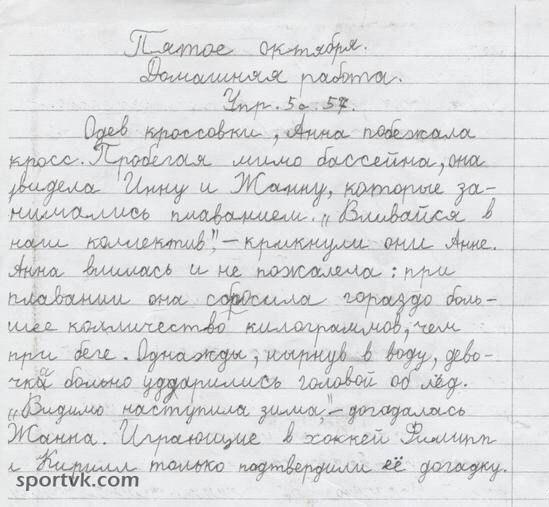 Пятое октября.
Домашняя работа.
Упр. 5 с. 57.
Одев кроссовки, Анна побежала
кросс. Пробегая мимо бассейна, она
увидела Инну и Жанну, которые за-
нимались плаванием. „Вливайся в
наш коллектив", – крикнули они Анне.
Анна влилась и не пожалела: при
плавании она сбросила гораздо боль-
шее колличество килограммов, чем
при беге. Однажды, нырнув в воду, дево-
чки больно ударились головой об лёд.
„Видимо наступила зима", – догадалась
Жанна. Играющие в хоккей Филипп
и Кирилл только подтвердили её догадку.
sportvk.com